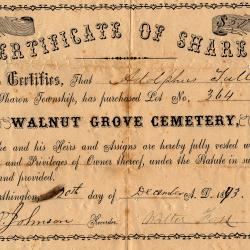 CERTIFICATE OF SHARE
Certifies, That Adolphus Tull
Sharon Township, has purchased Lot No. 364
WALNUT GROVE CEMETERY,
he and his Heirs and Assigns are hereby fully vested w
and Privileges of Owner thereof, under the Statute in su
and provided.
rthington, 20th day of December A. D. 1893.
Johnson Recorder Walter